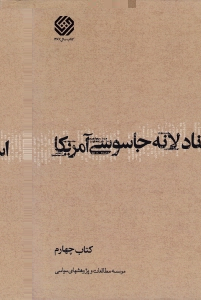 ناد لانه جاسوسی آمریکا
اس
کتاب چهارم
موسسه مطالعات و پژوهشهای سیاسی